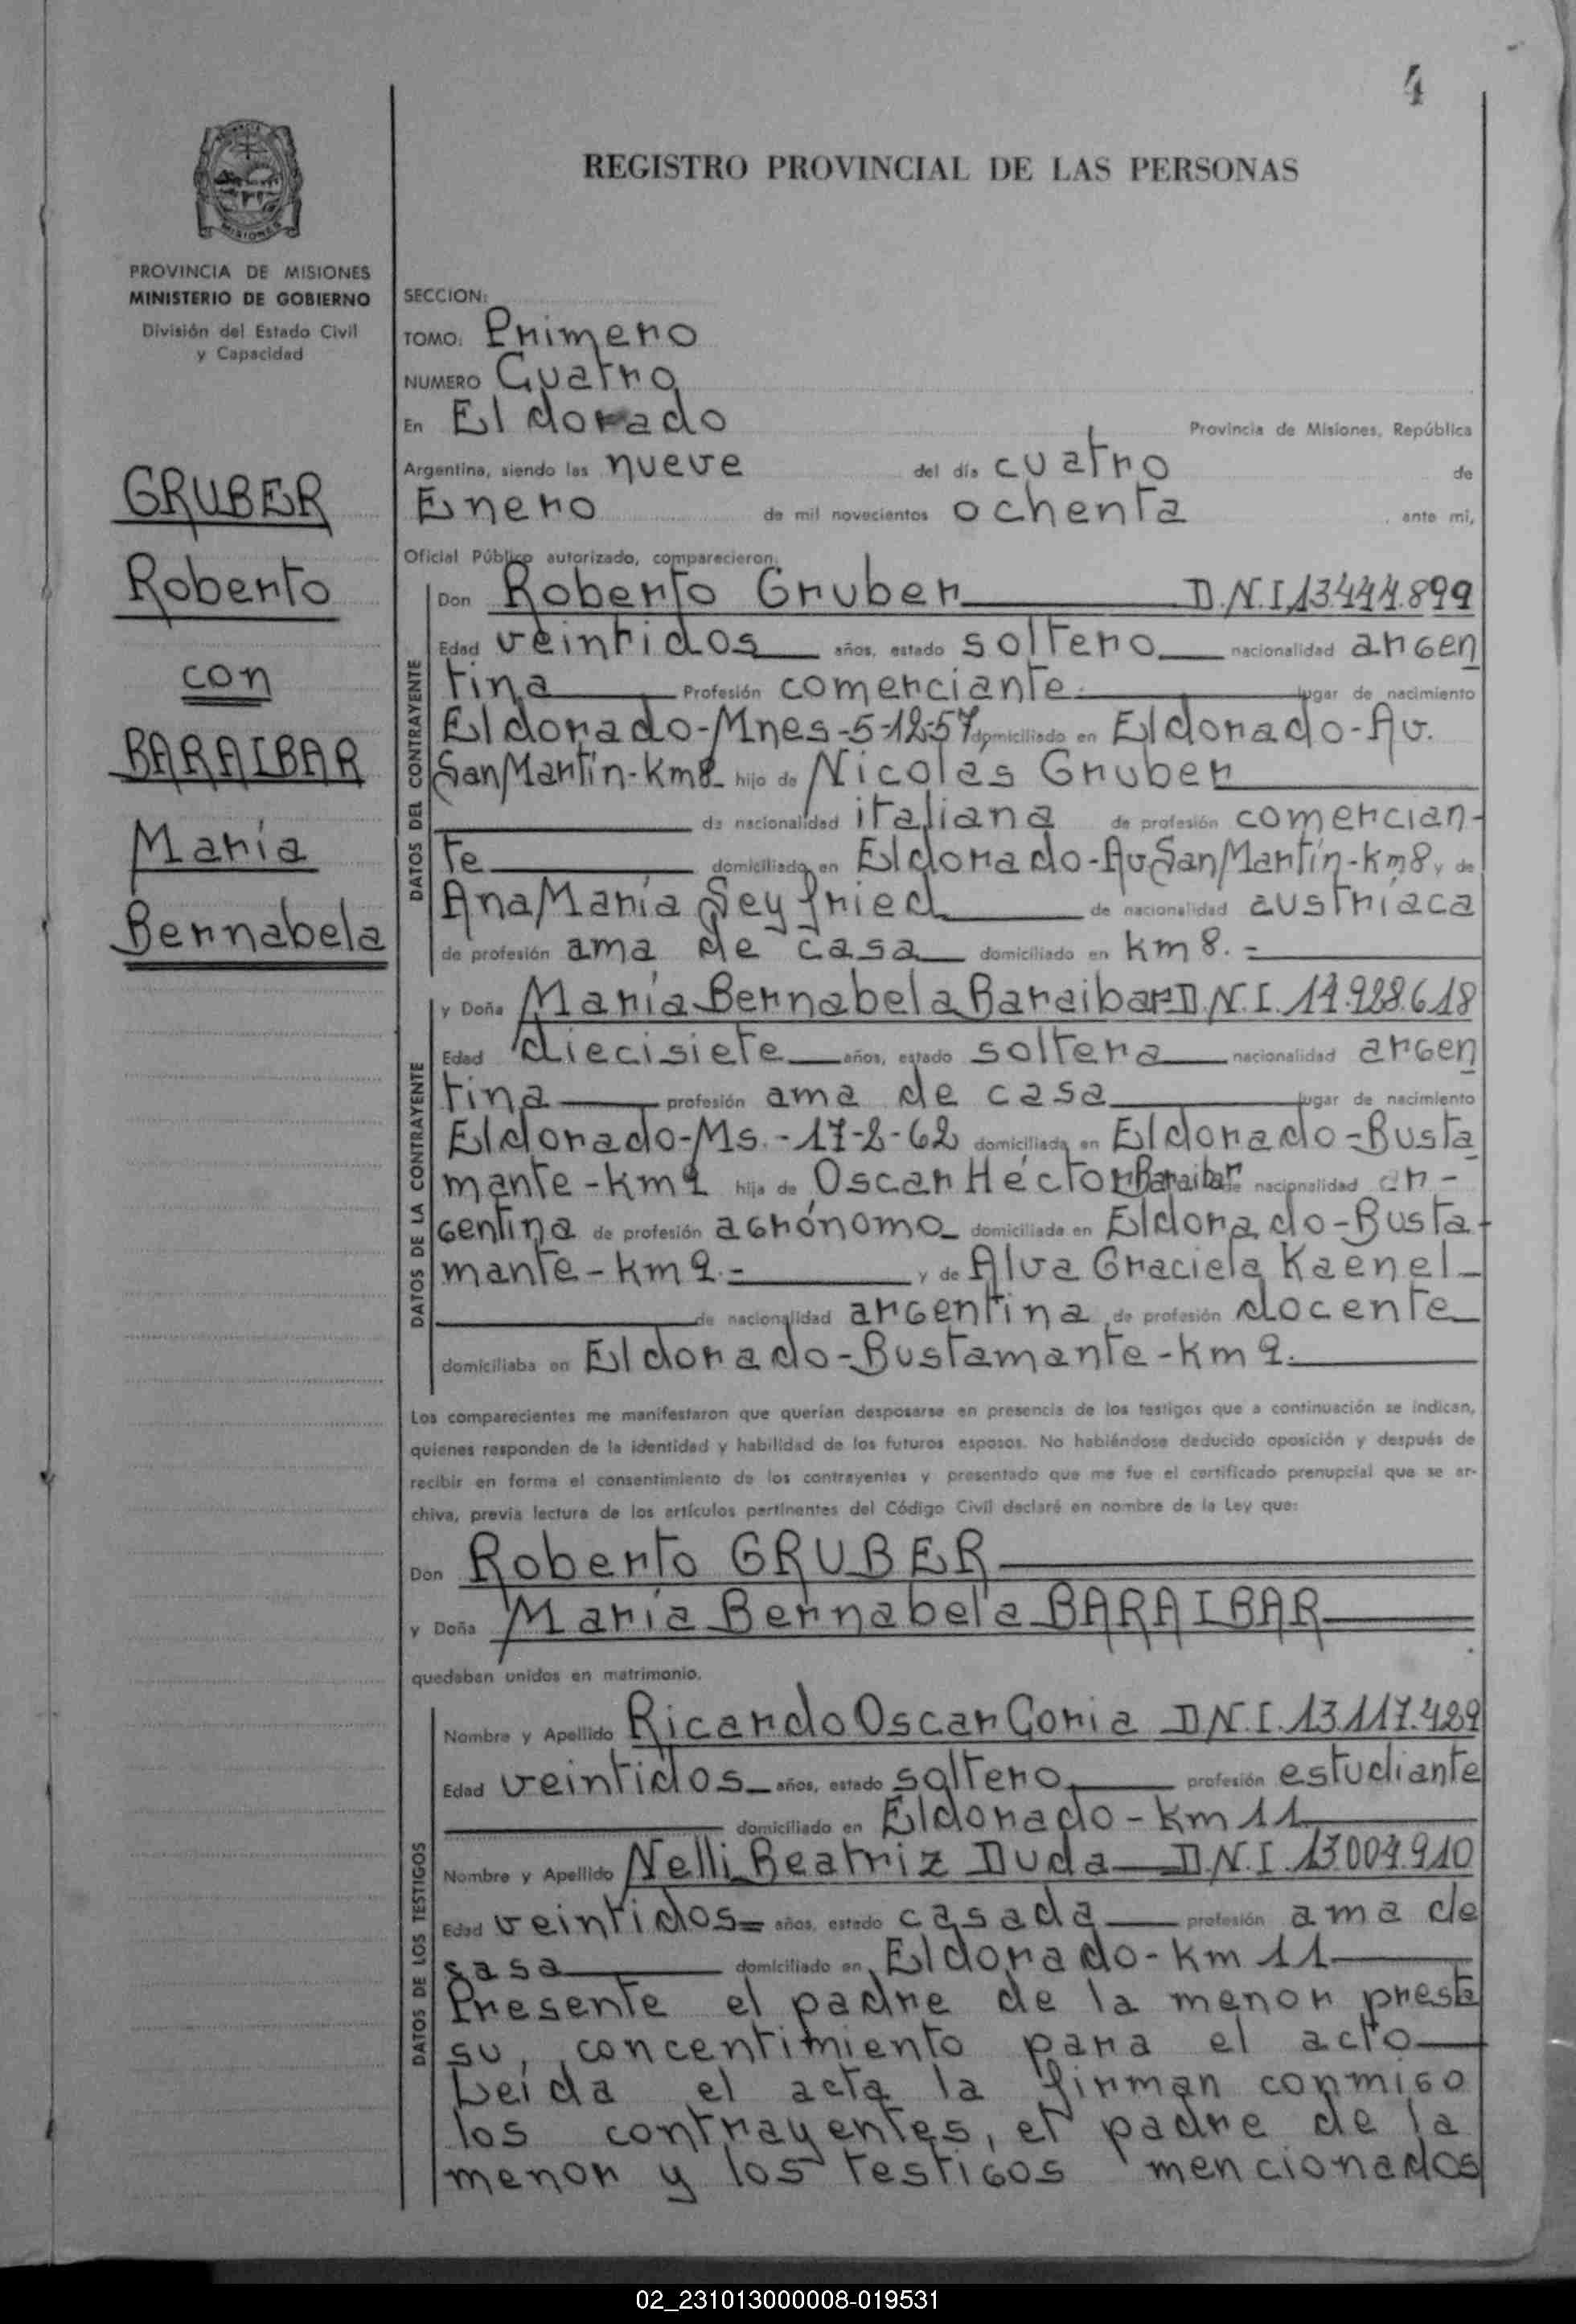 4
REGISTRO PROVINCIAL DE LAS PERSONAS
MISIONES
PROVINCIA DE MISIONES
MINISTERIO DE GOBIERNO
División del Estado Civil
y Capacidad
GRUBER
Roberto
con
BARAIBAR
María
Bernabela
SECCION:
TOMO: Primero
NUMERO Cuatro
En Eldorado Provincia de Misiones, República
Argentina, siendo las nueve del día cuatro de
Enero de mil novecientos ochenta , ante mi,
Oficial Público autorizado, comparecieron:
DATOS DEL CONTRAYENTE
Don Roberto Gruber D.N.I 13.444.899
Edad veintidos años, estado soltero nacionalidad argen
tina Profesión comerciante. lugar de nacimiento
Eldorado-Mnes-5-12-57 domiciliado en Eldorado-Av.
San Martín-km8 hijo de Nicolas Gruber
de nacionalidad italiana de profesión comercian-
te domiciliado en Eldorado-Av San Martín-km8 y de
Ana María Seyfried de nacionalidad austríaca
de profesión ama de casa domiciliado en km 8.=
DATOS DE LA CONTRAYENTE
y Doña María Bernabela Baraibar D.N.I. 14.928.618
Edad diecisiete años, estado soltera nacionalidad argen
tina profesión ama de casa lugar de nacimiento
Eldorado-Ms.-17-2-62 domiciliada en Eldorado-Busta
mante-km9 hija de Oscar Héctor Baraibar de nacionalidad ar-
gentina de profesión agrónomo domiciliada en Eldorado-Busta-
mante-km9.= y de Alva Graciela Kaenel
de nacionalidad argentina de profesión docente
domiciliaba en Eldorado-Bustamante-km 9.
Los comparecientes me manifestaron que querían desposarse en presencia de los testigos que a continuación se indican,
quienes responden de la identidad y habilidad de los futuros esposos. No habiéndose deducido oposición y después de
recibir en forma el consentimiento de los contrayentes y presentado que me fue el certificado prenupcial que se ar-
chiva, previa lectura de los artículos pertinentes del Código Civil declaré en nombre de la Ley que:
Don Roberto GRUBER
y Doña María Bernabela BARAIBAR
quedaban unidos en matrimonio.
DATOS DE LOS TESTIGOS
Nombre y Apellido Ricardo Oscar Goria D.N.I. 13.117.489
Edad veintidos años, estado soltero profesión estudiante
domiciliado en Eldorado-km 11
Nombre y Apellido Nelli Beatriz Duda D.N.I. 13.004.910
Edad veintidos= años, estado casada profesión ama de
casa domiciliado en Eldorado-km 11
Presente el padre de la menor presta
su concentimiento para el acto
Leída el acta la firman conmigo
los contrayentes, el padre de la
menor y los testigos mencionados
02_231013000008-019531